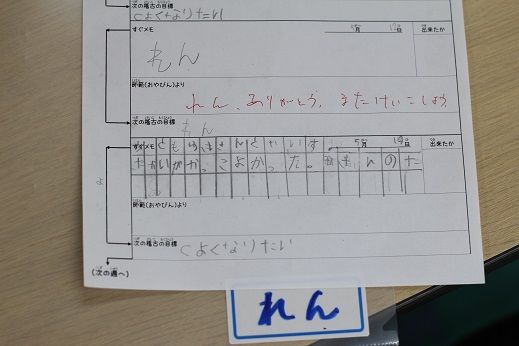 次の稽古の目標
つよくなりたい
すぐメモ 5月 12日 出来たか
れん
師範(おやびん)より
れん、ありがとう。またけいこしよう
次の稽古の目標
れん
すぐメモ 5月 19日 出来たか
ともゆきさんとかいす
たいががかっこよかった。
師範(おやびん)より
次の稽古の目標
つよくなりたい
(次の週へ)
れん